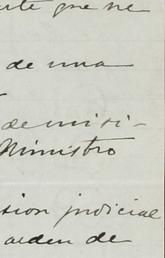 arte que ne
de una
de misi-
Ministro
sion judicial
orden de